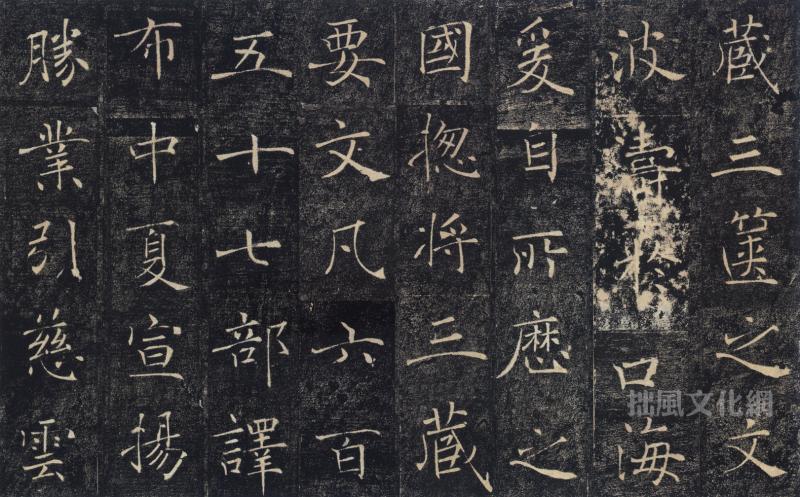 藏三篋之文
波濤於口海
爰自所歷之
國揔將三藏
要文凡六百
五十七部譯
布中夏宣揚
勝業引慈雲
拙風文化網